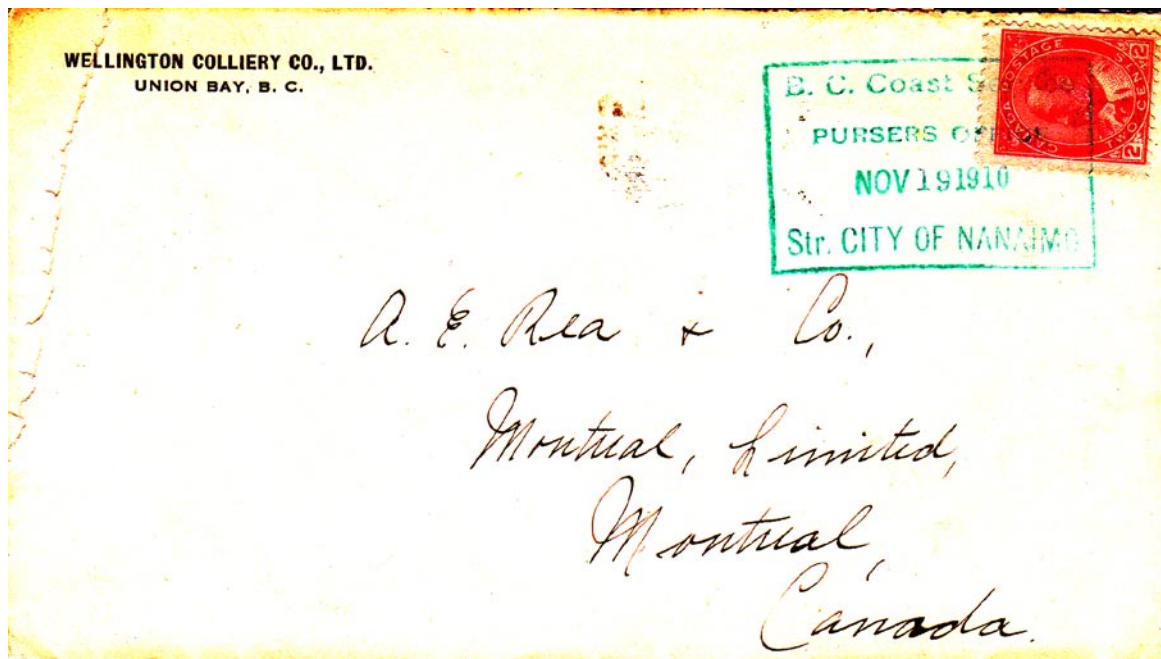 WELLINGTON COLLIERY CO., LTD.
UNION BAY, B. C.
B. C. Coast
PURSERS
NOV 19 1910
Str. CITY OF NANAIMO
CANADA POSTAGE
TWO CENTS
2 2
A. E. Rea & Co.,
Montreal, Limited,
Montreal,
Canada.